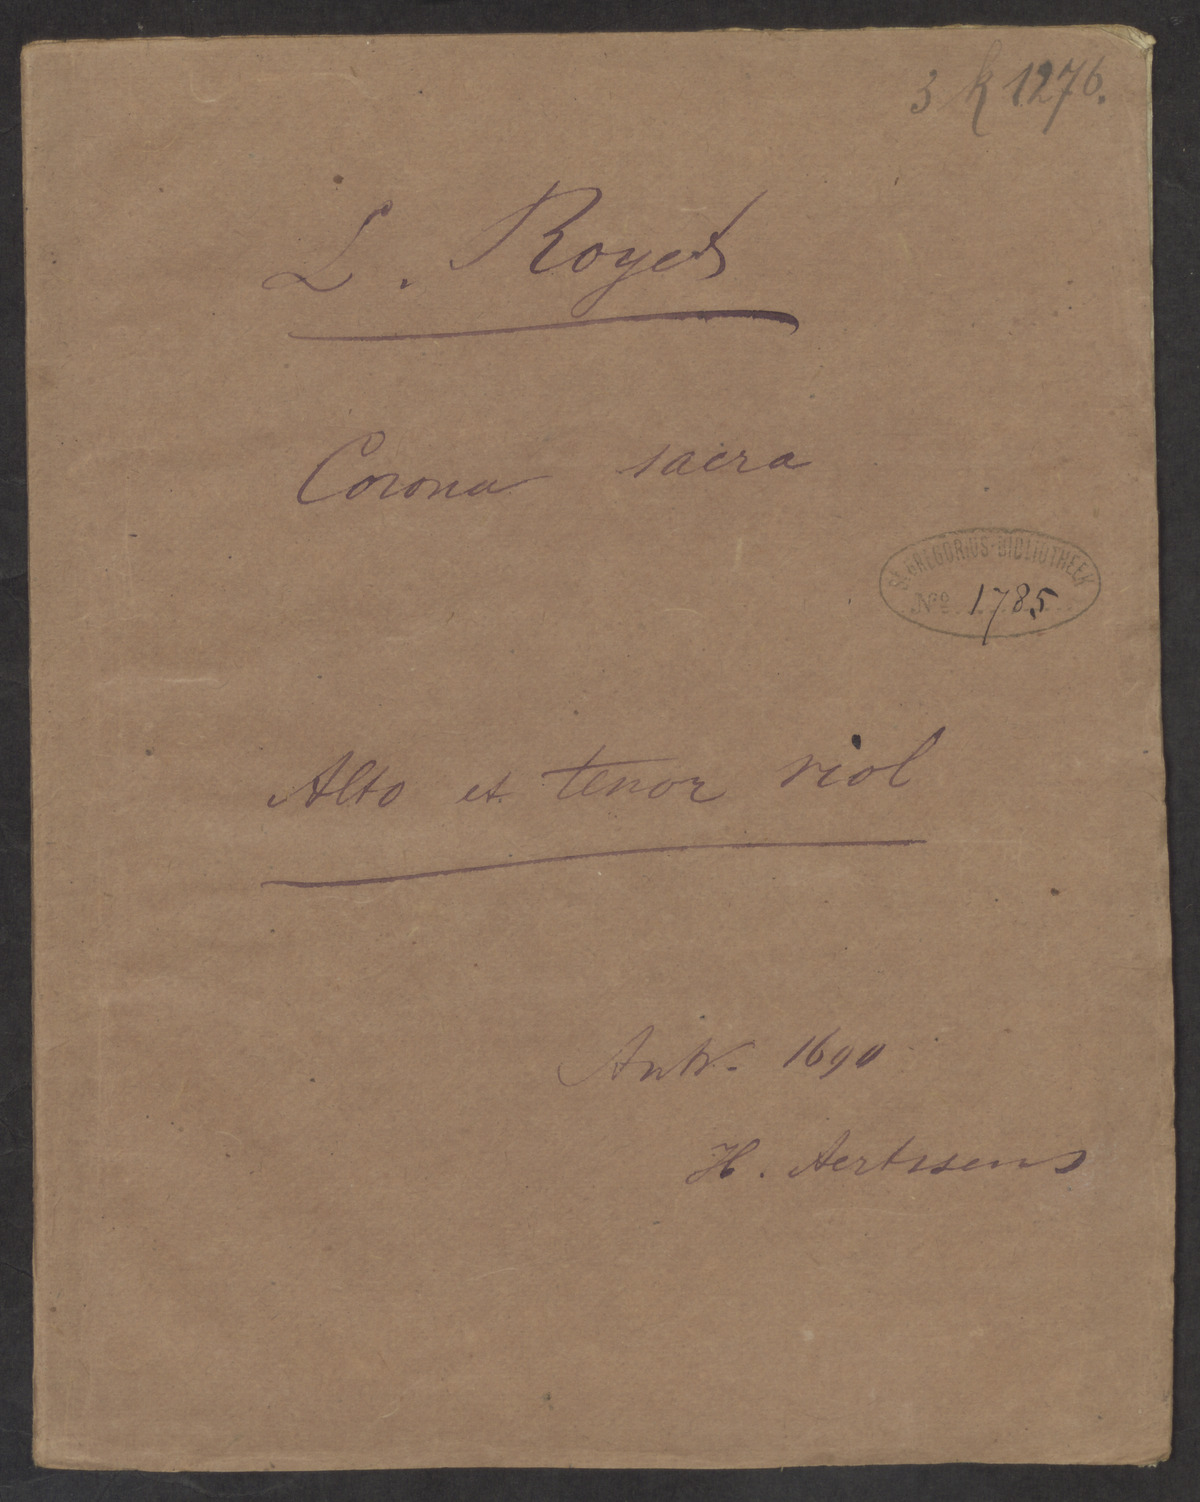 3 k 1276.
L. Royet
Corona sacra
St GREGORIUS-BIBLIOTHEEK
No 1785
Alto et tenor viol
Antw. 1690
H. Aertssens